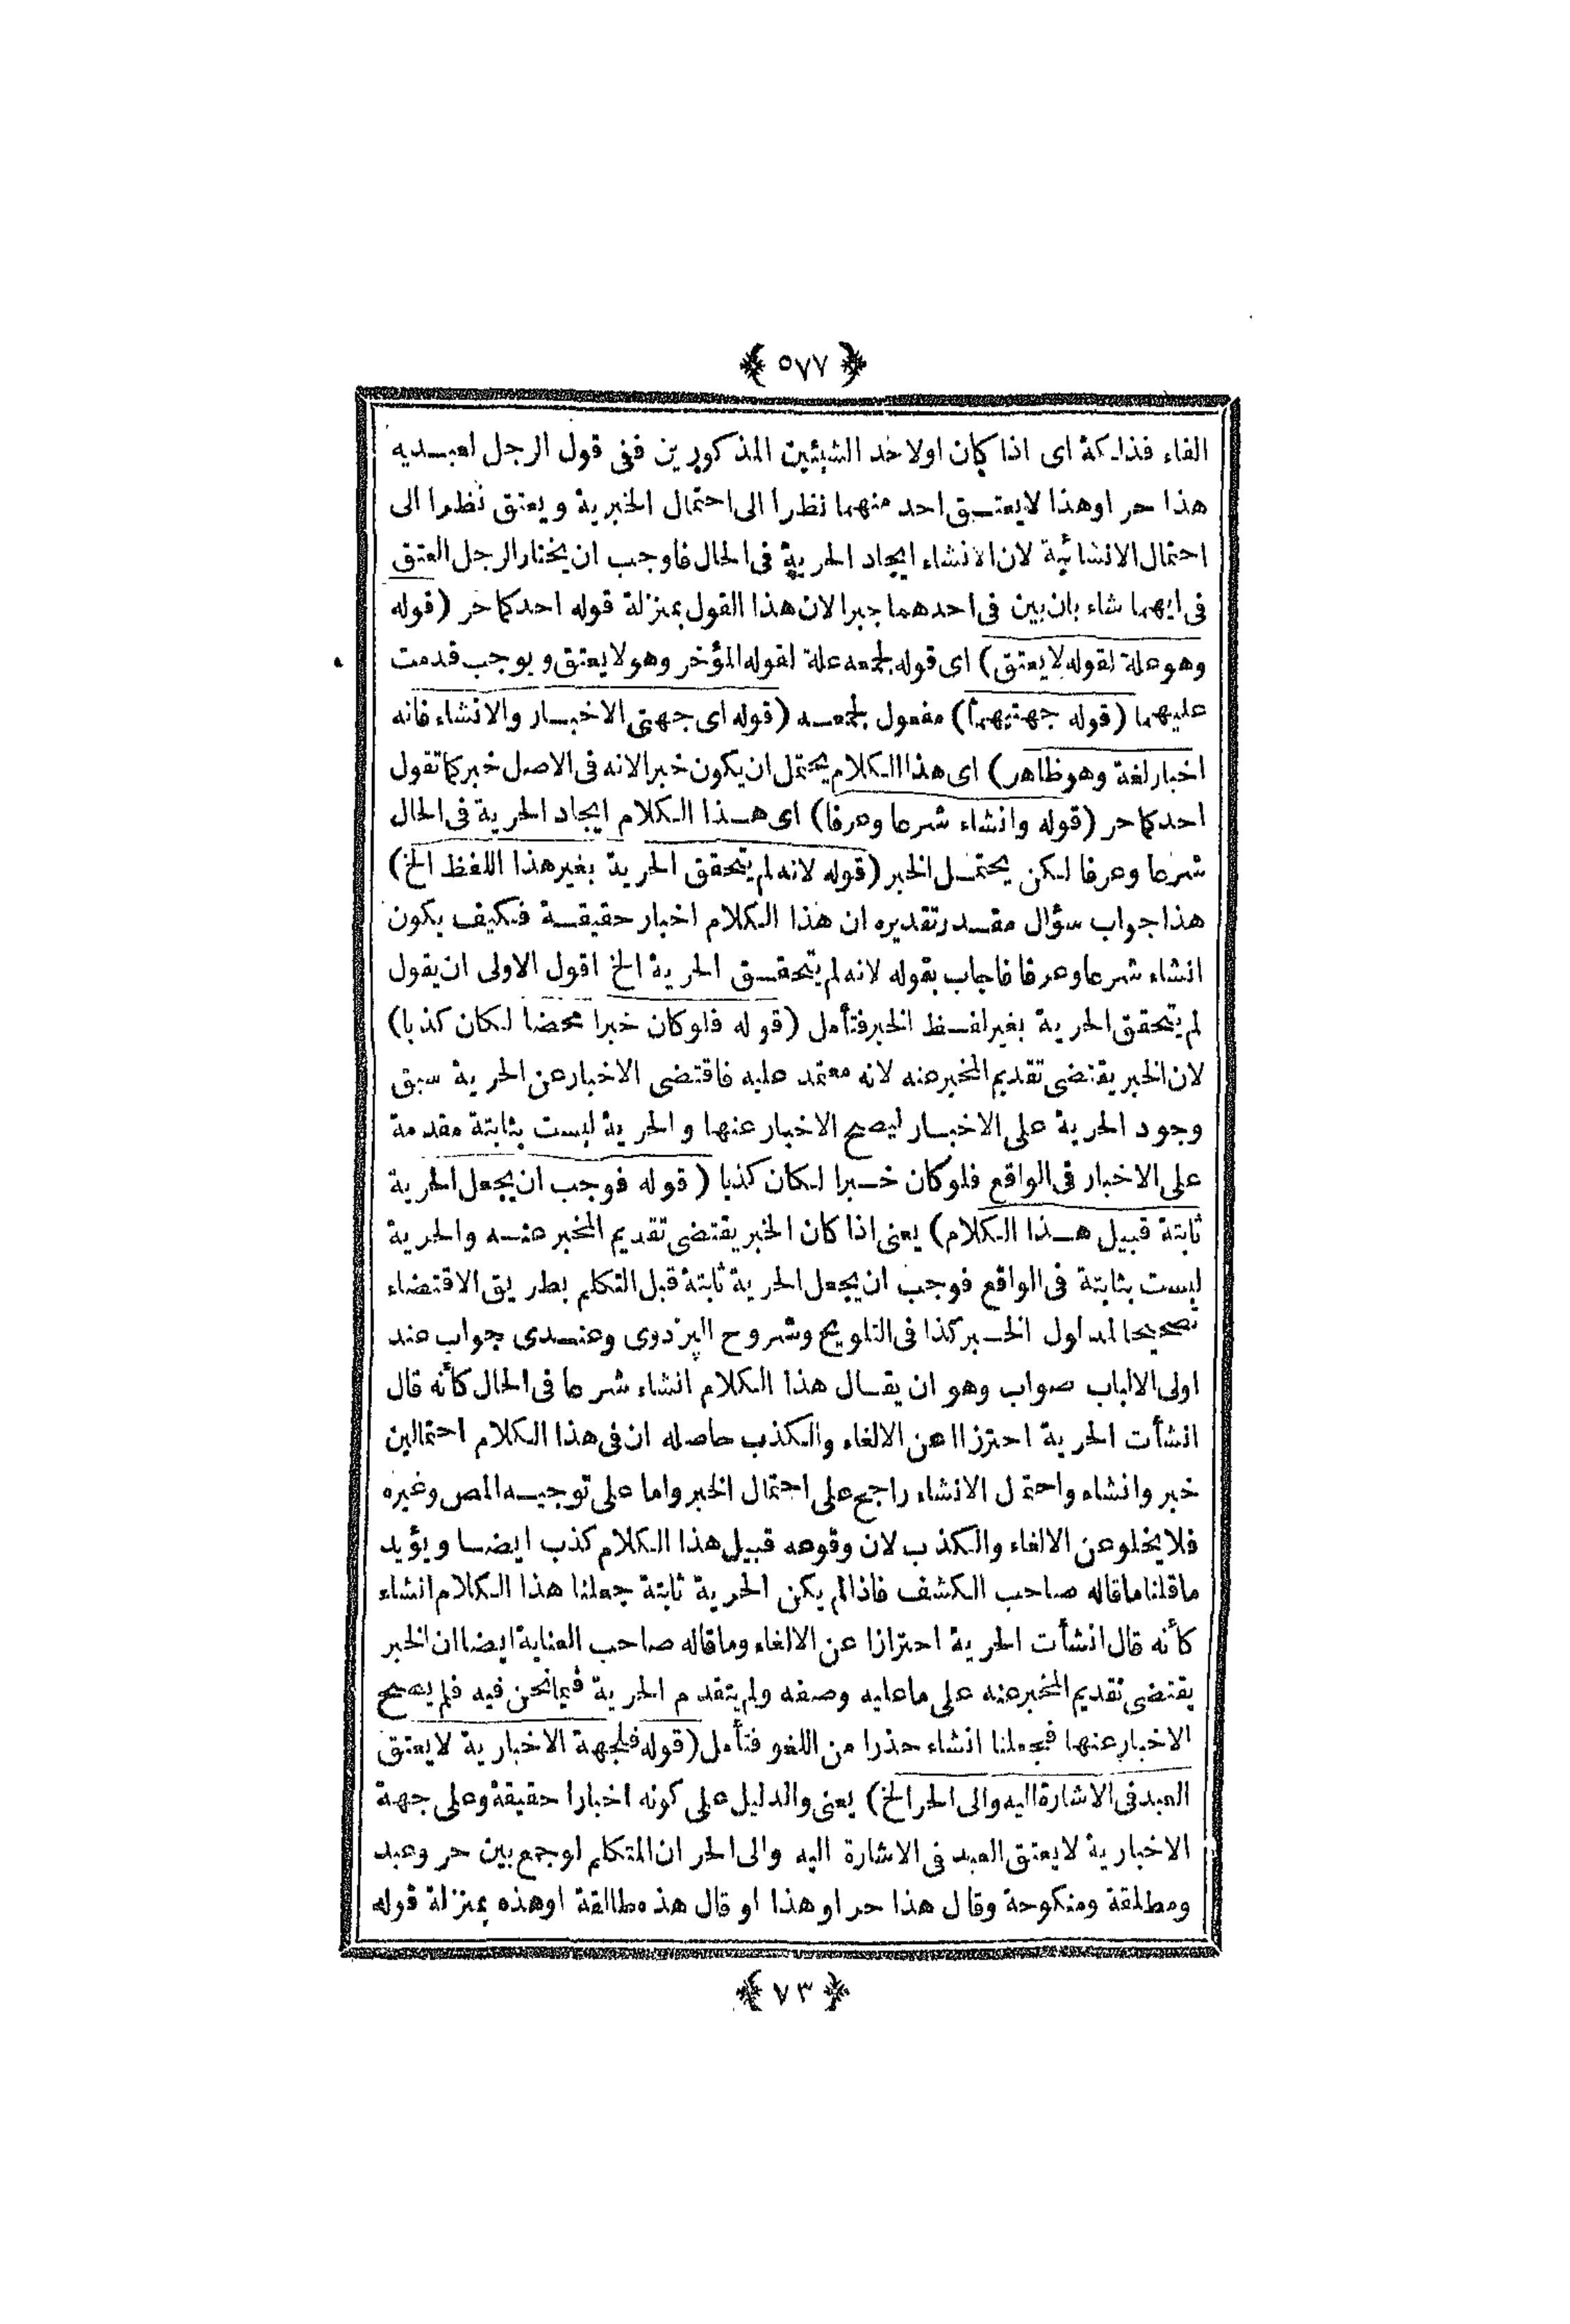 ﴿ ٥٧٧ ﴾
الفاء فذلكة اى اذا كان اولاحد الشيئين المذكورين ففى قول الرجل لعبديه
هذا حر اوهذا لايعتق احد منهما نظرا الى احتمال الخبرية ويعتق نظرا الى
احتمال الانشائية لان الانشاء ايجاد الحرية فى الحال فاوجب ان يختار الرجل العتق
فى ايهما شاء بان بين فى احدهما جبرا لان هذا القول بمنزلة قوله احدكما حر (قوله
وهو علة لقوله لا يعتق) اى قوله لجمعه علة لقوله المؤخر وهو لا يعتق ويوجب قدمت
عليهما (قوله جهتيهما) مفعول لجمعه (قوله اى جهتى الاخبار والانشاء فانه
اخبار لغة وهو ظاهر) اى هذا الكلام يحتمل ان يكون خبرا لانه فى الاصل خبر كما تقول
احدكما حر (قوله وانشاء شرعا وعرفا) اى هذا الكلام ايجاد الحرية فى الحال
شرعا وعرفا لكن يحتمل الخبر (قوله لانه لم يتحقق الحرية بغير هذا اللفظ الخ)
هذا جواب سؤال مقدر تقديره ان هذا الكلام اخبار حقيقة فكيف يكون
انشاء شرعا وعرفا فاجاب بقوله لانه لم يتحقق الحرية الخ اقول الاولى ان يقول
لم يتحقق الحرية بغير لفظ الخبر فتأمل (قوله فلو كان خبرا محضا لكان كذبا)
لان الخبر يقتضى تقديم المخبر عنه لانه معتمد عليه فاقتضى الاخبار عن الحرية سبق
وجود الحرية على الاخبار ليصح الاخبار عنها والحرية ليست بثابتة مقدمة
على الاخبار فى الواقع فلو كان خبرا لكان كذبا (قوله فوجب ان يجعل الحرية
ثابتة قبيل هذا الكلام) يعنى اذا كان الخبر يقتضى تقديم المخبر عنه والحرية
ليست بثابتة فى الواقع فوجب ان يجعل الحرية ثابتة قبل التكلم بطريق الاقتضاء
تصحيحا لمدلول الخبر كذا فى التلويح وشروح البزدوى وعندى جواب عند
اولى الالباب صواب وهو ان يقال هذا الكلام انشاء شرعا فى الحال كأنه قال
انشأت الحرية احترزا عن الالغاء والكذب حاصله ان فى هذا الكلام احتمالين
خبر وانشاء واحتمل الانشاء راجح على احتمال الخبر واما على توجيه المص وغيره
فلا يخلو عن الالغاء والكذب لان وقوعه قبيل هذا الكلام كذب ايضا ويؤيد
ما قلنا ما قاله صاحب الكشف فاذا لم يكن الحرية ثابتة جعلنا هذا الكلام انشاء
كأنه قال انشأت الحرية احترازا عن الالغاء وما قاله صاحب العناية ايضا ان الخبر
يقتضى تقديم المخبر عنه على ما عليه وصفه ولم يتقدم الحرية فيما نحن فيه فلم يصح
الاخبار عنها فجعلنا انشاء حذرا من اللغو فتأمل (قوله فلجهة الاخبارية لا يعتق
العبد فى الاشارة اليه والى الحر الخ) يعنى والدليل على كونه اخبارا حقيقة وعلى جهة
الاخبارية لا يعتق العبد فى الاشارة اليه والى الحر ان المتكلم لو جمع بين حر وعبد
ومطلقة ومنكوحة وقال هذا حر او هذا او قال هذه طالقة او هذه بمنزلة قوله
﴿ ٧٣ ﴾